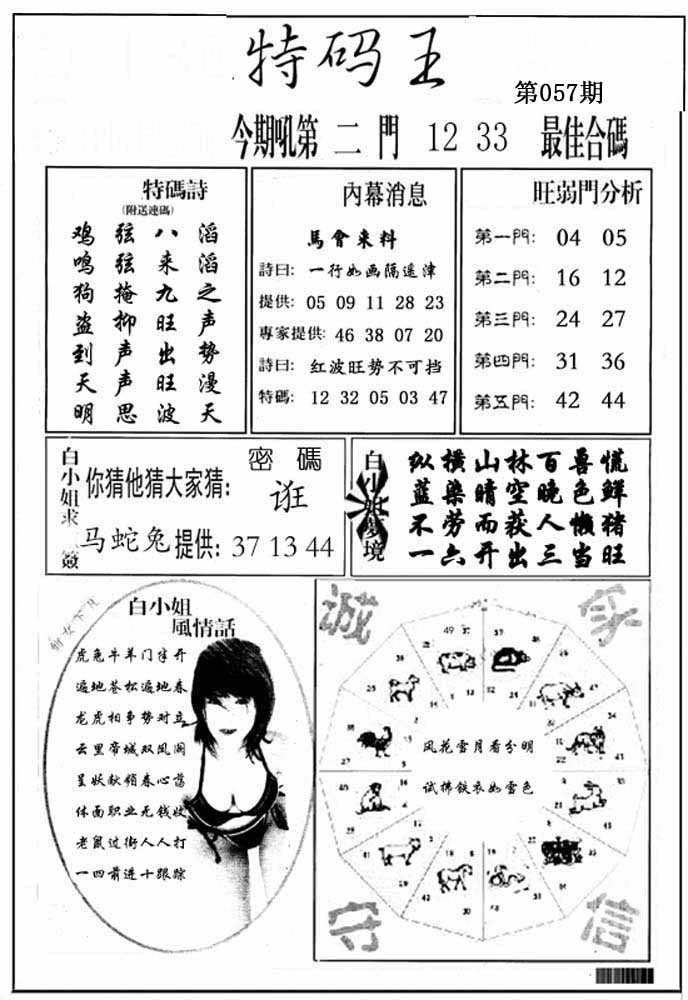 特码王
第057期
今期吼第二門 12 33 最佳合碼
特碼詩
(附送連碼)
鸡鸣狗盗到天明
弦弦掩抑声声思
八来九旺出旺波
滔滔之声势漫天
內幕消息
馬會来料
詩曰: 一行如画隔遥津
提供: 05 09 11 28 23
專家提供: 46 38 07 20
詩曰: 红波旺势不可挡
特碼: 12 32 05 03 47
旺弱門分析
第一門: 04 05
第二門: 16 12
第三門: 24 27
第四門: 31 36
第五門: 42 44
白小姐求簽
密碼
你猜他猜大家猜: 诳
马蛇兔提供: 37 13 44
白小姐夢境
纵横山林百喜慌
蓝染晴空晚色鲜
不劳而获人懒猪
一六开出三当旺
白小姐
風情話
虎兔牛羊门字开
遍地苍松遍地春
龙虎相争势对立
云里帝城双凤阁
呈妖献领春心荡
休面职业无钱收
老鼠过街人人打
一四前进十跟踪
诚
守
信
风花雪月看分明
试拂铁衣如雪色